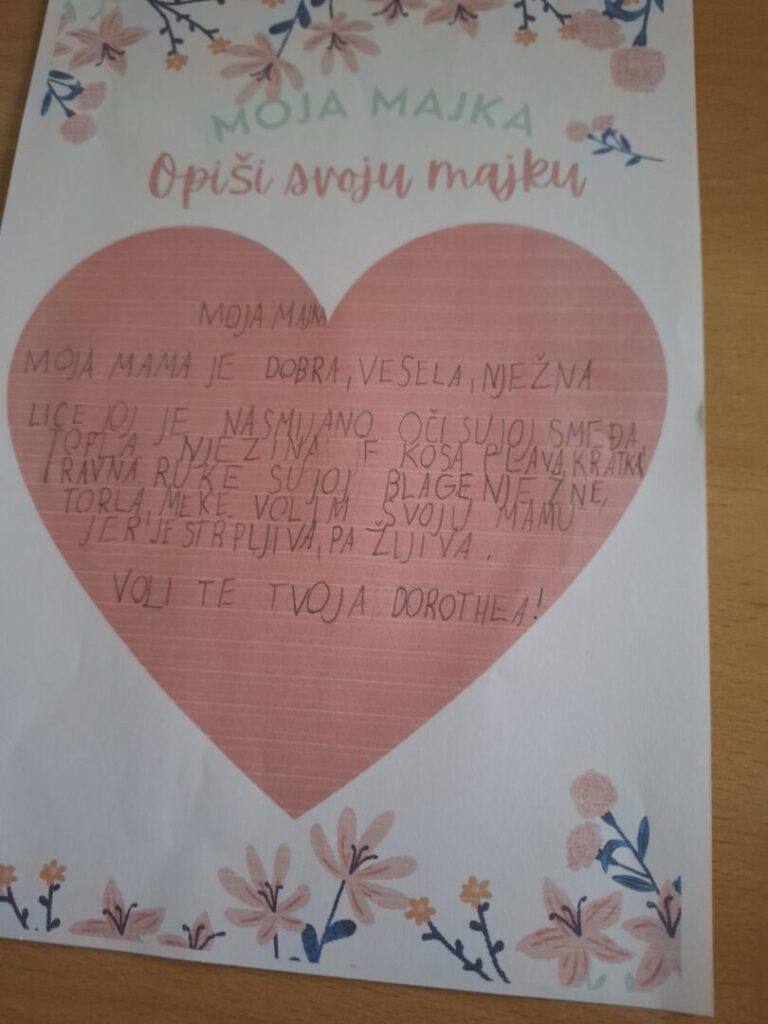 MOJA MAJKA
Opiši svoju majku
MOJA MAJKA
MOJA MAMA JE DOBRA, VESELA, NJEŽNA
LICE JOJ JE NASMIJANO. OČI SU JOJ SMEĐA,
TOPLA. NJEZINA JE KOSA PLAVA, KRATKA
I RAVNA. RUKE SU JOJ BLAGE NJEŽNE,
TORLA, MEKE. VOLIM SVOJU MAMU
JER JE STRPLJIVA, PAŽLJIVA.
VOLI TE TVOJA DOROTHEA!